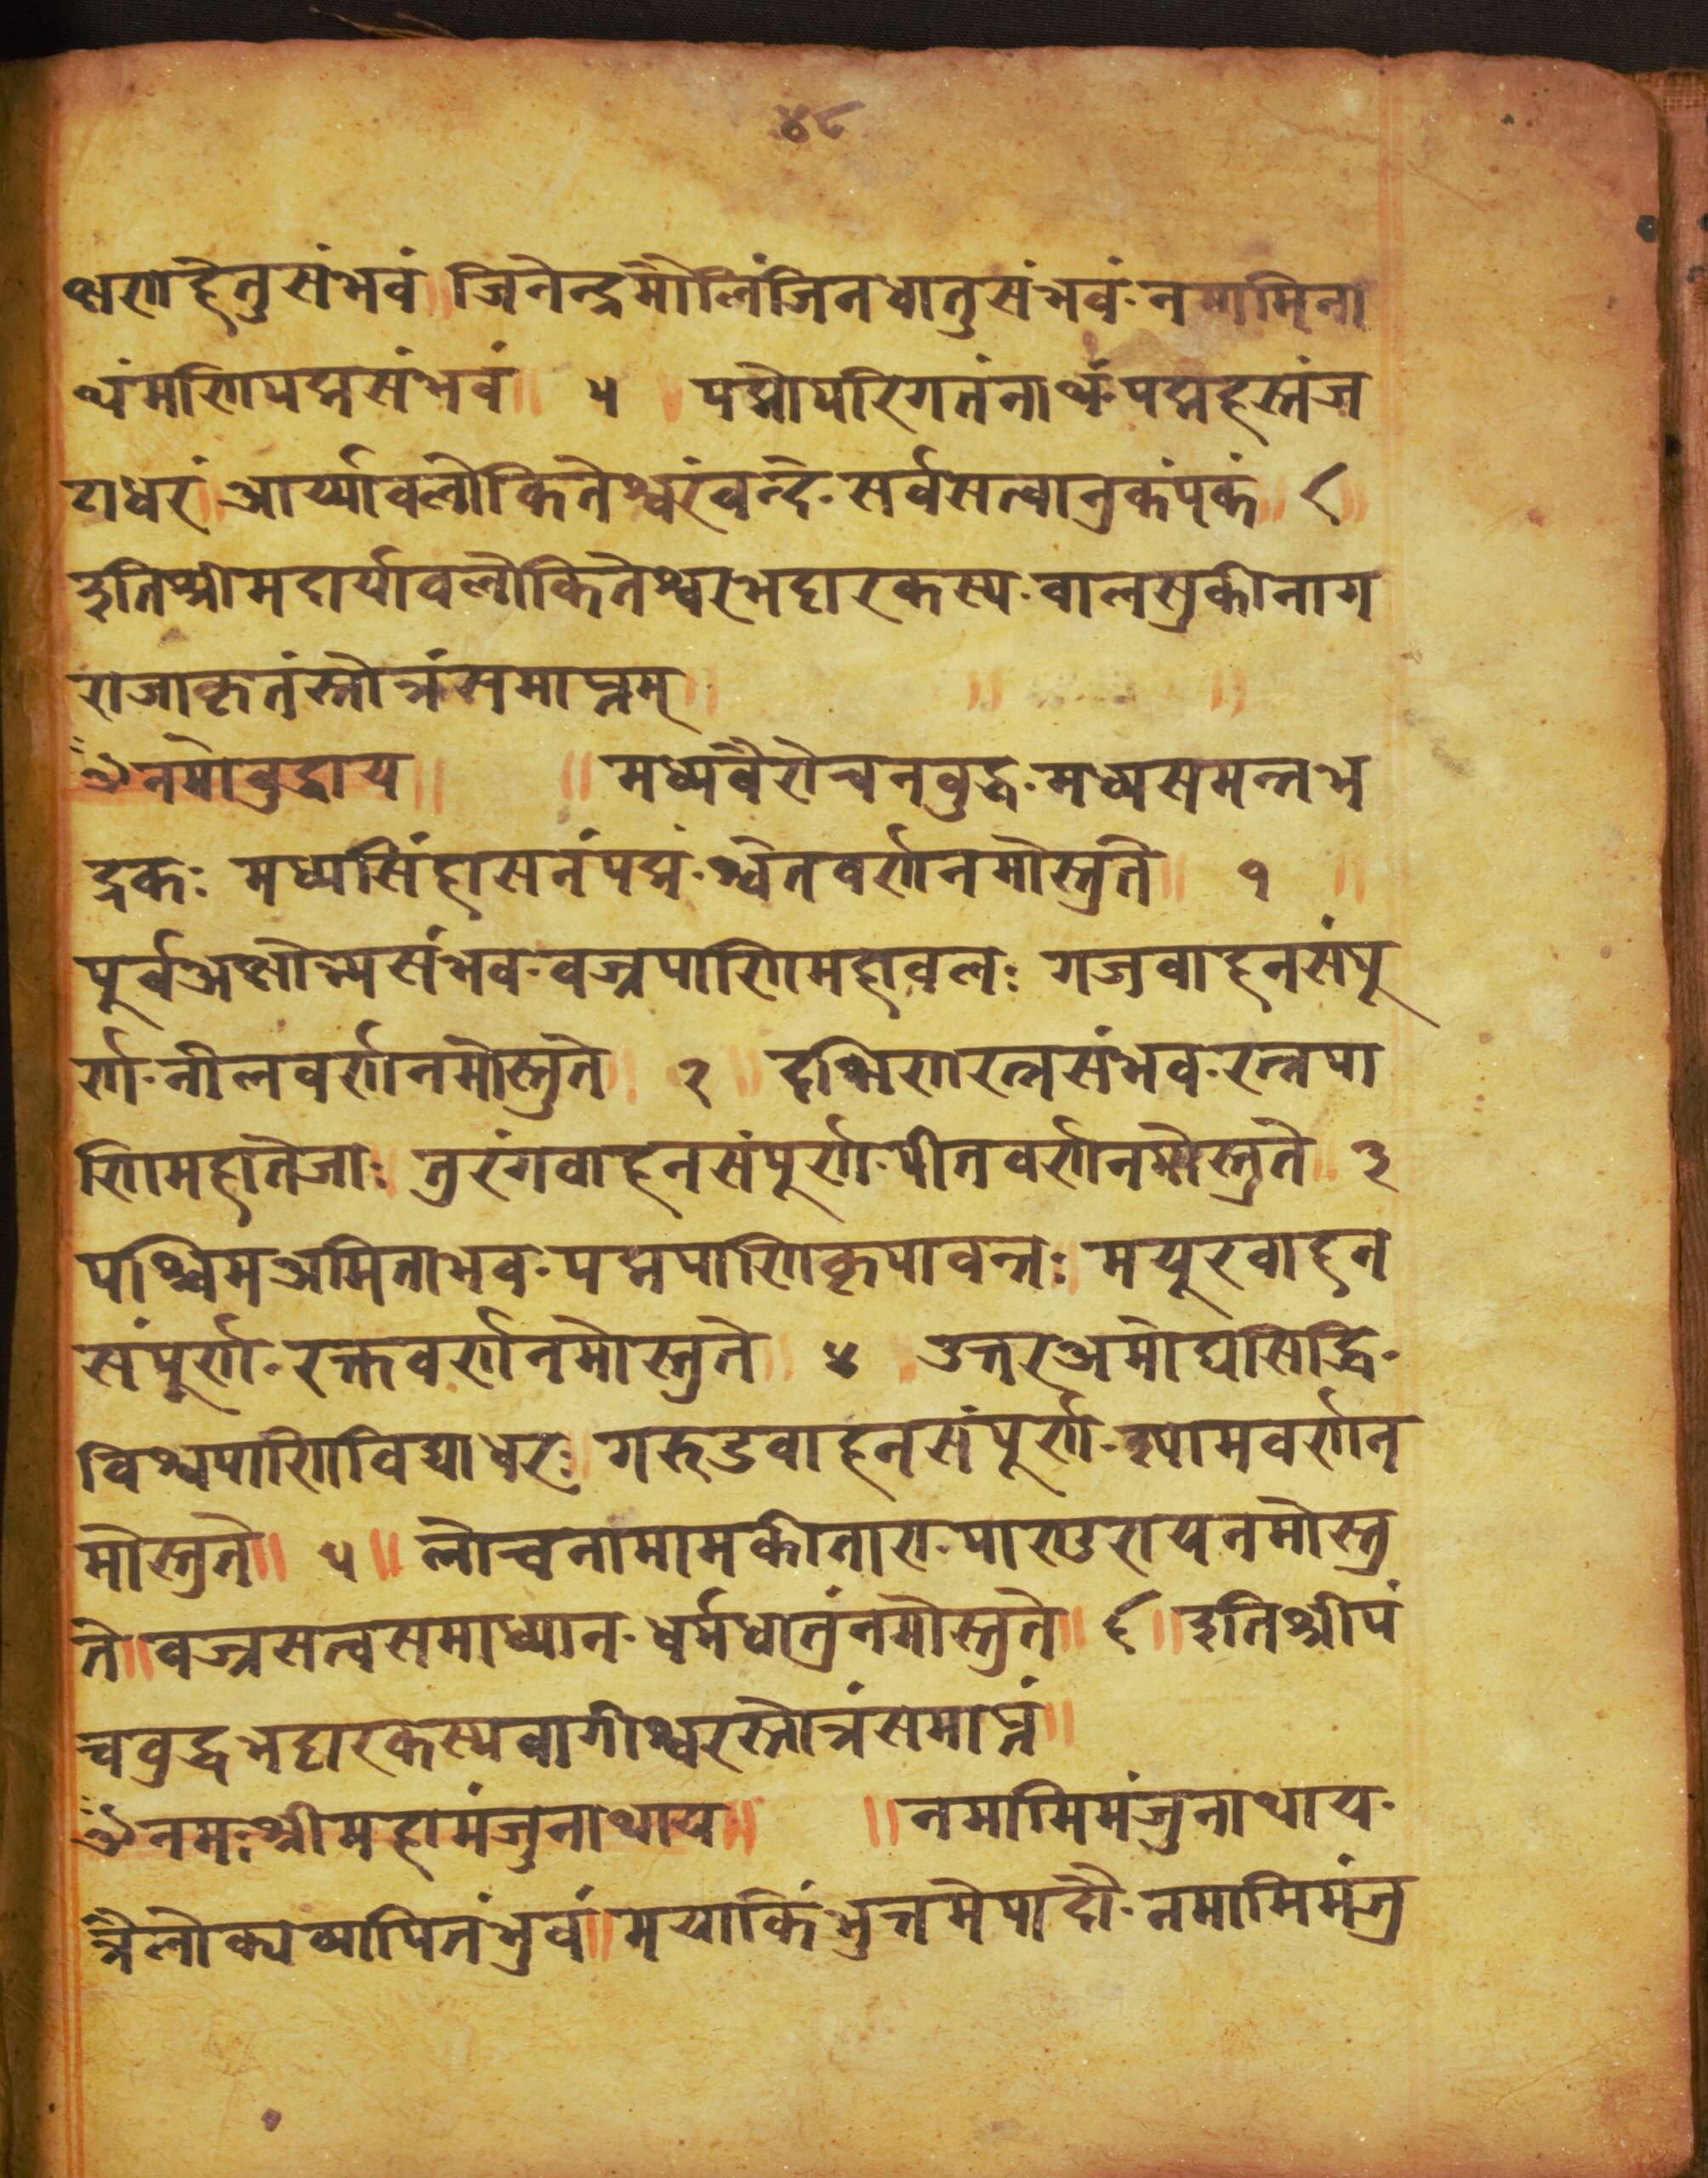 ४८
क्षणहेतुसंभवं॥जिनेन्द्रमौलिंजिनधातुसंभवं-नमामिना
थंमणिपद्मसंभवं॥ ५ ॥ पद्मोपरिगतंनाथं-पद्महस्तंज
टाधरं॥आर्य्यावलोकितेश्वरंवन्दे-सर्वसत्वानुकंपकं॥ ६॥
इतिश्रीमदार्यावलोकितेश्वरभट्टारकस्य-वालसुकीनाग
राजाकृतंस्तोत्रंसमाप्तम्॥ ॥ ॥
ॐनमोबुद्धाय॥ ॥मध्यवैरोचनवुद्ध-मध्यसमन्तभ
द्रकः मध्यसिंहासनंपद्मं-श्वेतवर्णनमोस्तुते॥ १ ॥
पूर्वअक्षोभ्यसंभव-वज्रपाणिमहावलः गजवाहनसंपू
र्ण-नीलवर्णनमोस्तुते॥ २ ॥दक्षिणरत्नसंभव-रत्नपा
णिमहातेजाः॥तुरंगवाहनसंपूर्ण-पीतवर्णनमोस्तुते॥ ३
पश्चिमअमिताभव-पद्मपाणिकृपावन्तः॥मयूरवाहन
संपूर्ण-रक्तवर्णनमोस्तुते॥ ४ ॥उत्तरअमोघसिद्धि-
विश्वपाणिविद्याधरः॥गरुडवाहनसंपूर्ण-श्यामवर्णन
मोस्तुते॥ ५॥लोचनामामकीतारा-पाण्डरायनमोस्तु
ते॥वज्रसत्वसमाध्यान-धर्मधातुंनमोस्तुते॥ ६॥इतिश्रीपं
चवुद्धभट्टारकस्यवागीश्वरस्तोत्रंसमाप्तं॥
ॐनमःश्रीमहामंजुनाथाय॥ ॥नमामिमंजुनाथाय-
त्रैलोक्यव्यापितंभुवं॥मयाकिंभुत्तमेपादौ-नमामिमंजु